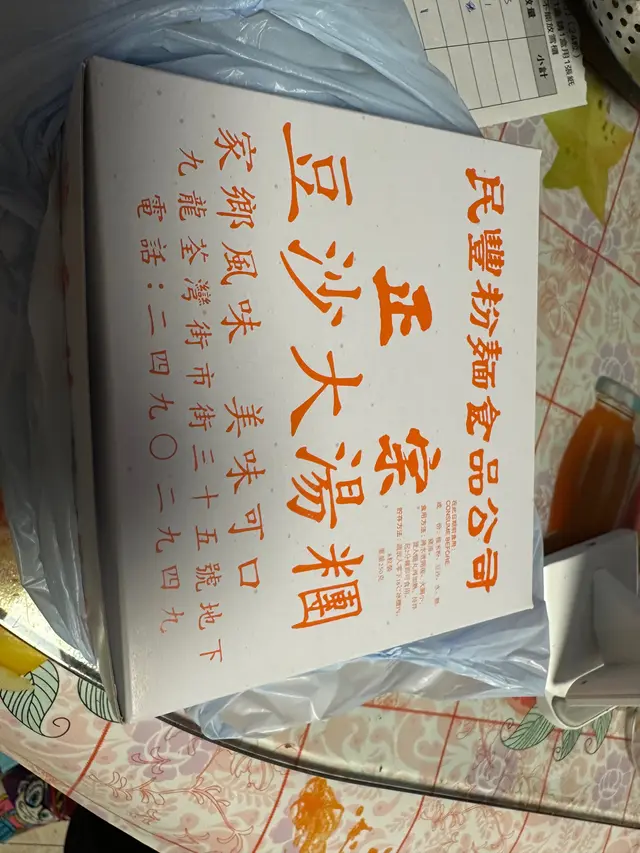 民豐粉麵食品公司
正宗
豆沙大湯糰
家鄉風味 美味可口
九龍荃灣街市街三十五號地下
電話：二四九〇二九四九
CONSUME BEFORE:
小計
1